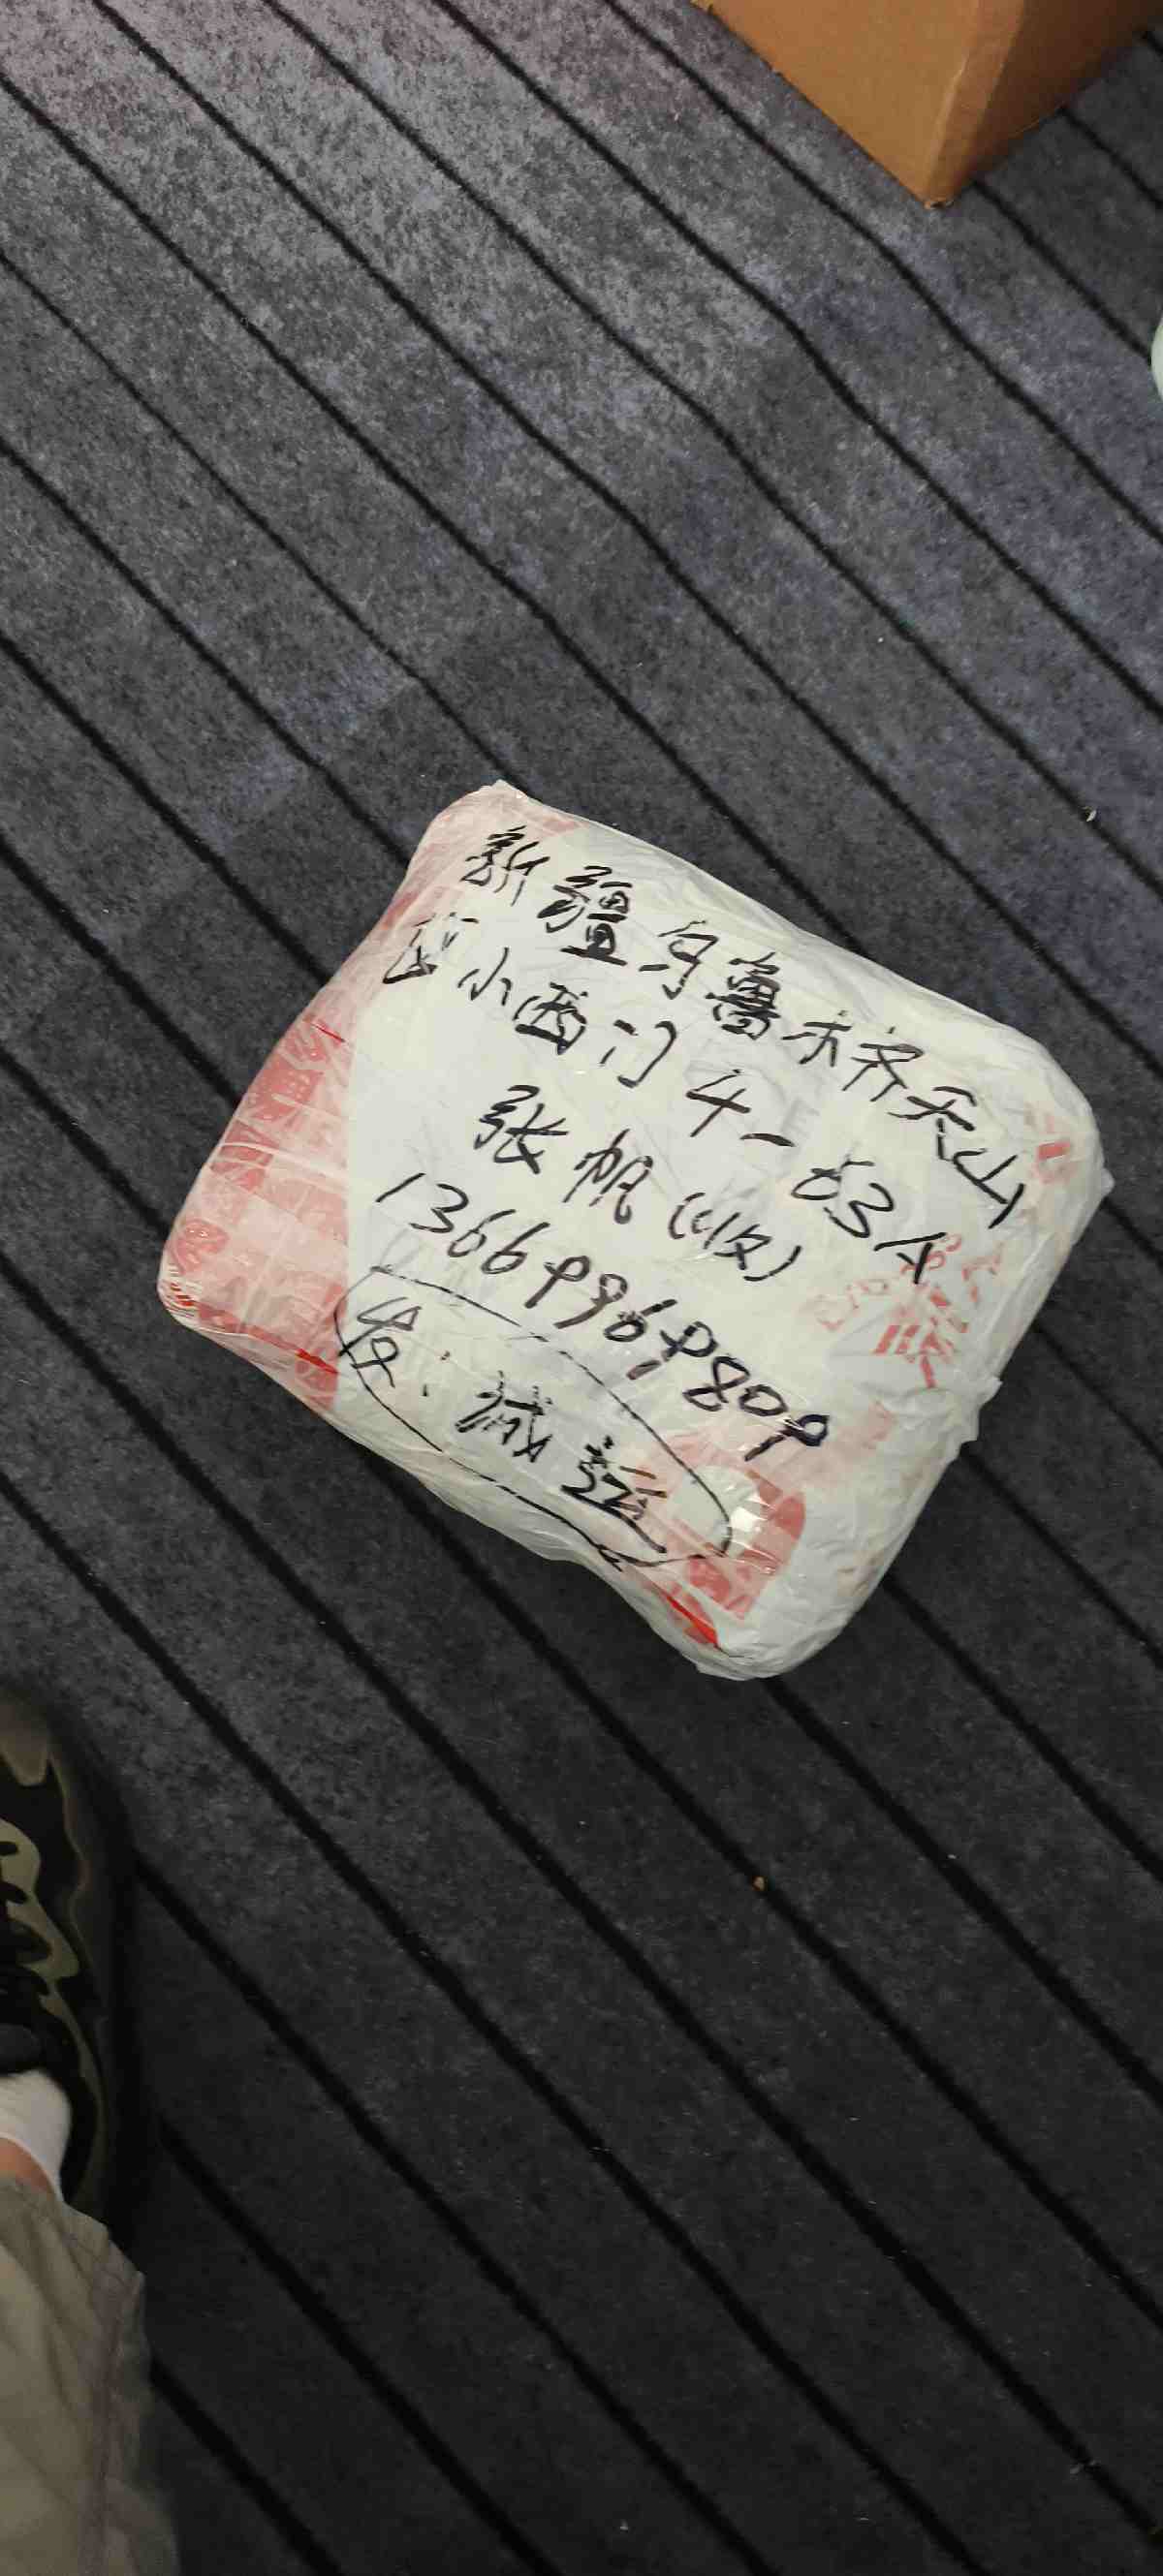 新疆乌鲁木齐天山
区小西门4-63A
张帆(收)
13669969809
发:诚